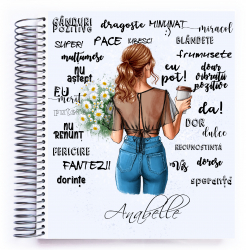 GÂNDURI POZITIVE
dragoste
MINUNAT
miracol
SUPER!
PACE
IUBESC!
BLÂNDEȚE
frumusețe
mulțumesc
nu aștept
eu pot!
doar vibrații pozitive
EU merit
putere
da!
DOR
dulce
nu RENUNȚ
RECUNOȘTINȚĂ
FERICIRE
FANTEZII!
Vis
doresc
dorințe
speranță
Anabelle